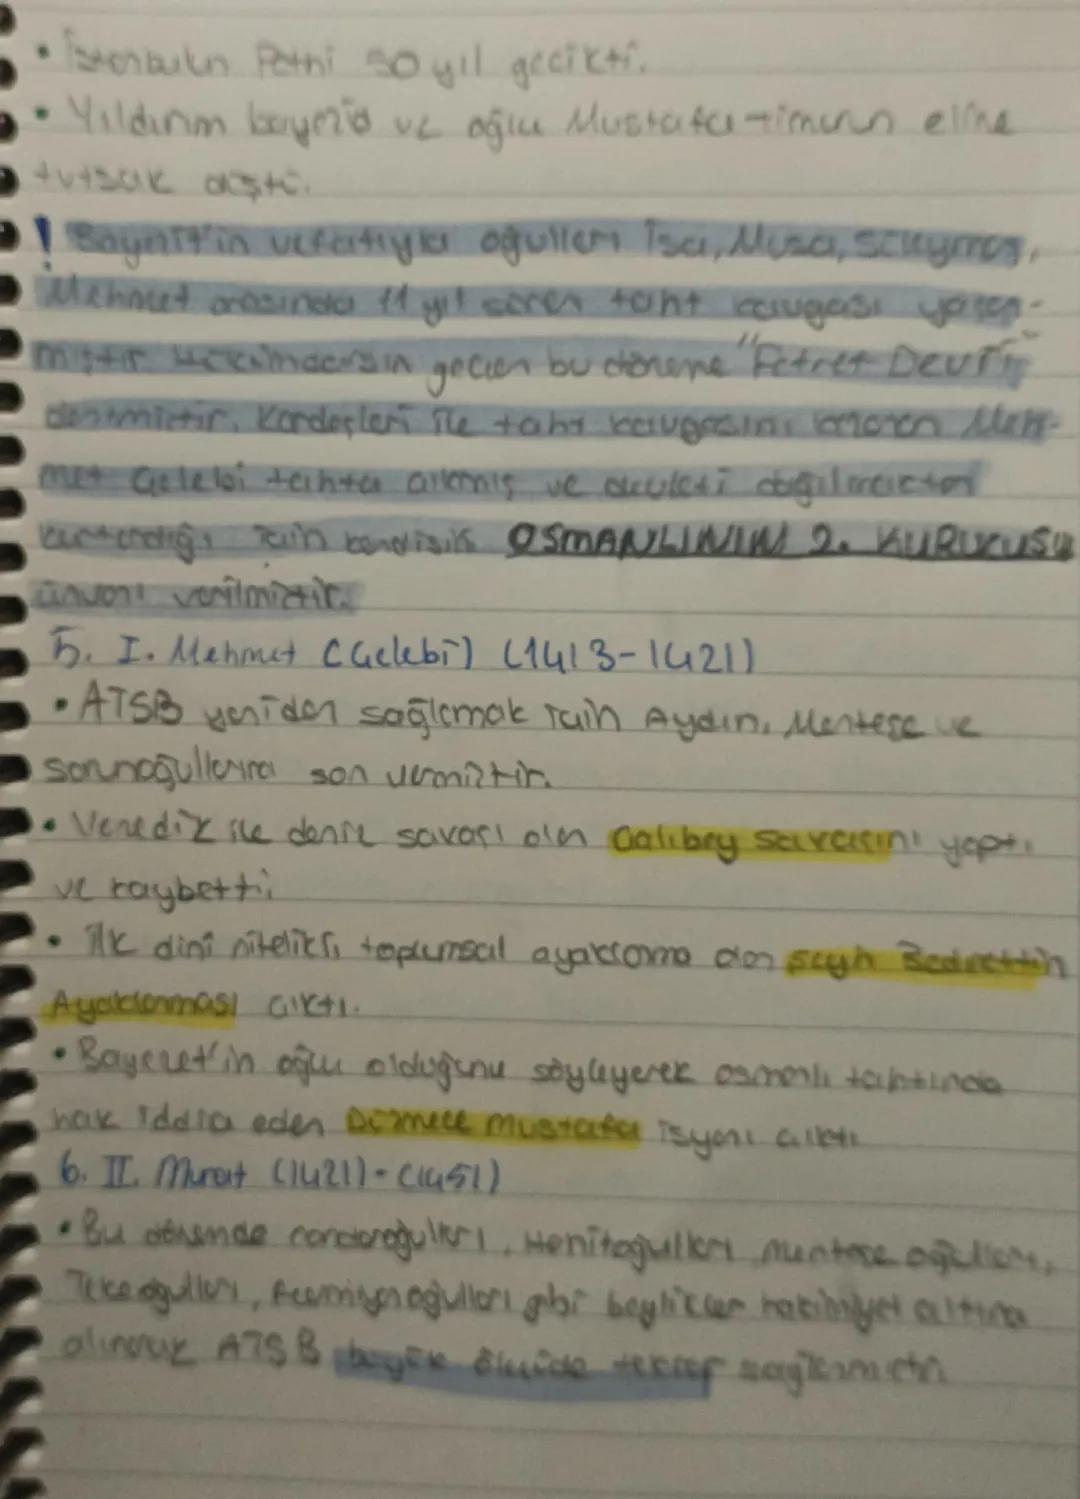 • İstanbulun Fethi 50 yıl gecikti.
• Yıldırım bayezid ve oğlu Mustafa timurun eline
tutsak düştü.
! Bayezit'in vefatıyla oğulları İsa, Musa, Süleyman,
Mehmet arasında 11 yıl süren taht kavgası yaşan-
mıştır. Hükümdarsın geçen bu döneme "Fetret Devri"
denmiştir. Kardeşleri ile taht kavgasını kazanan Meh-
met Çelebi tahta çıkmış ve devleti dağılmaktan
kurtardığı için kendisine OSMANLININ 2. KURUCUSU
ünvanı verilmiştir.
5. I. Mehmet (Çelebi) (1413-1421)
• ATSB yeniden sağlamak için Aydın, Menteşe ve
Saruhoğullarına son vermiştir.
• Venedik ile deniz savaşı olan Galibey savaşını yaptı
ve kaybetti
• İlk dini nitelikli toplumsal ayaklanma olan Şeyh Bedrettin
Ayaklanması çıktı.
• Bayezet'in oğlu olduğunu söyleyerek osmanlı tahtında
hak iddia eden Düzmece Mustafa isyanı çıktı
6. II. Murat (1421)-(1451)
• Bu dönemde candaroğulları, Hamitoğulları, menteşe oğulları,
Tekeoğulları, Germiyanoğulları gibi beylikler hakimiyet altına
alınarak ATSB büyük ölçüde tekrar sağlanmıştır